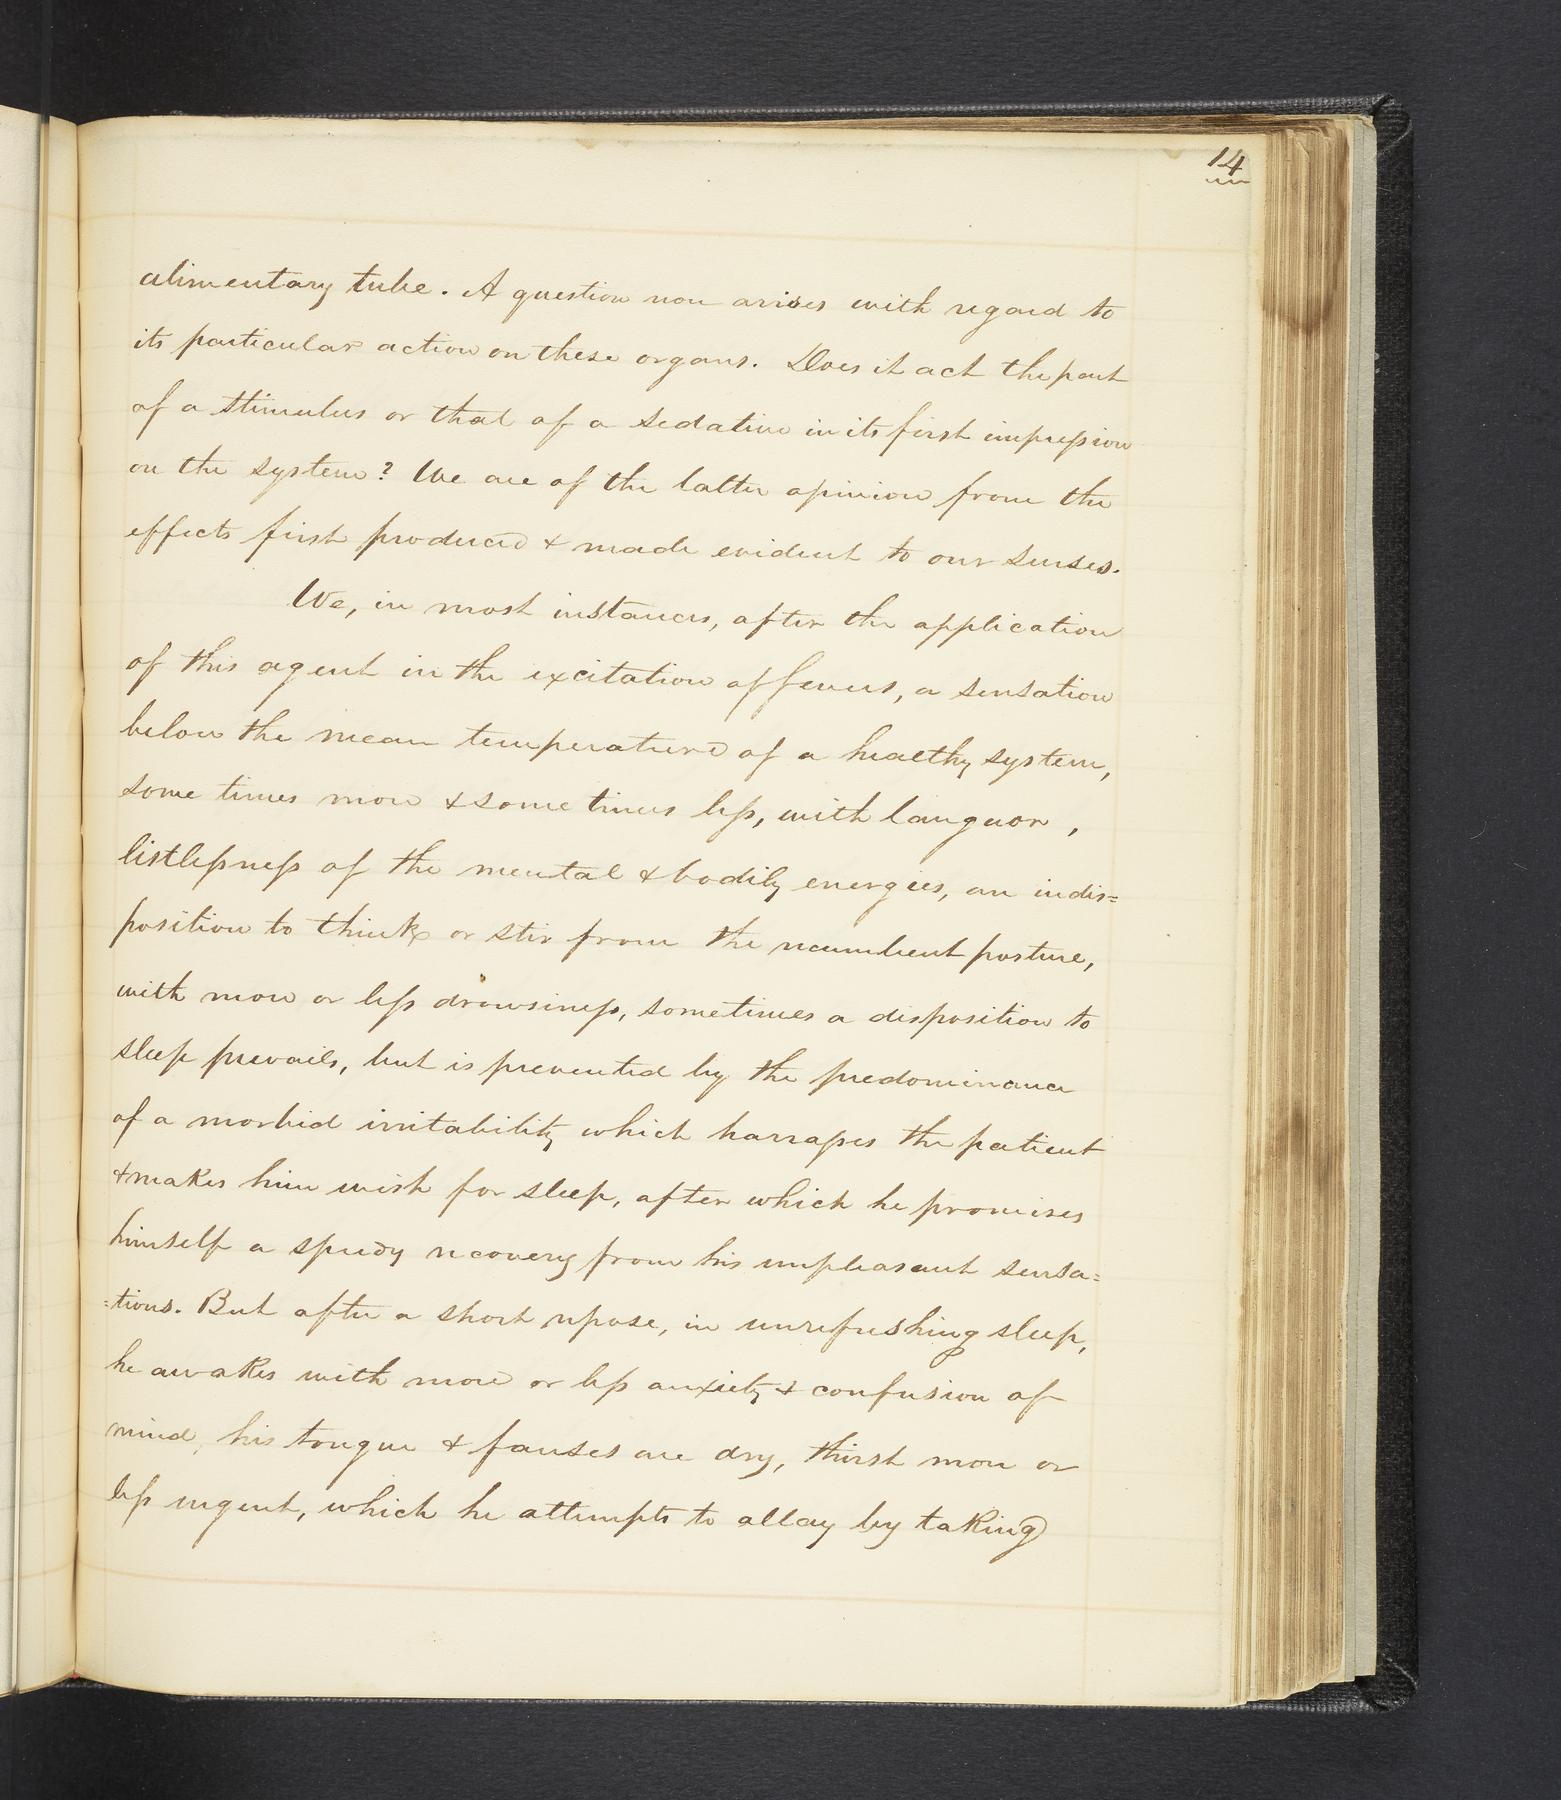 14
alimentary tube. A question now arises with regard to
its particular action on these organs. Does it act the part
of a stimulus or that of a sedative in its first impression
on the system? We are of the latter opinion from the
effects first produced & made evident to our senses.
We, in most instances, after the application
of this agent in the excitation of fevers, a sensation
below the mean temperature of a healthy system,
some times more & some times less, with languor,
listlessness of the mental & bodily energies, an indis=
position to think or stir from the recumbent posture,
with more or less drowsiness, sometimes a disposition to
sleep prevails, but is prevented by the predominance
of a morbid irritability which harrasses the patient
& makes him wish for sleep, after which he promises
himself a speedy recovery from his unpleasant sensa=
=tions. But after a short repose, in unrefreshing sleep,
he awakes with more or less anxiety & confusion of
mind, his tongue & fauses are dry, thirst more or
less urgent, which he attempts to allay by taking